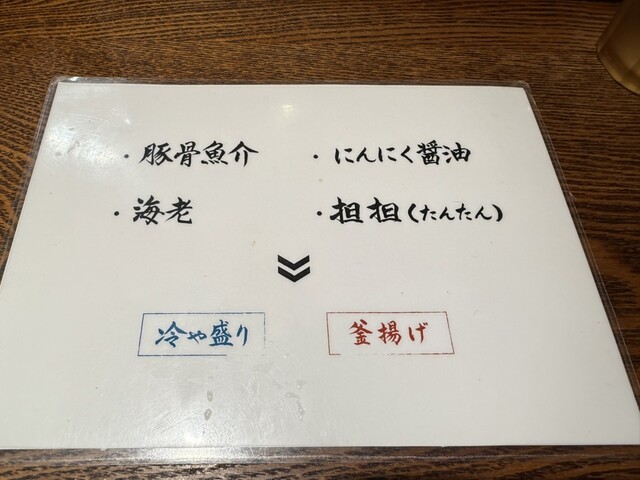 ・豚骨魚介
・にんにく醤油
・海老
・担担(たんたん)
冷や盛り
釜揚げ